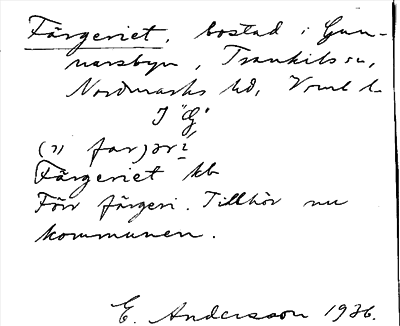 Färgeriet, bostad i Gun-
narsbyn, Trankils sn,
Nordmarks hd, Vrml l.
I "G"
(1) farjər
Färgeriet kb
Förr färgeri. Tillhör nu
kommunen.
E. Andersson 1936.